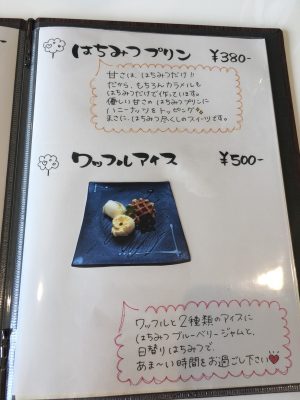 はちみつプリン ¥380-
甘さは、はちみつだけ!!
だから、もちろんカラメルも
はちみつだけで作っています。
優しい甘さの はちみつプリンに
ハニーナッツをトッピング
まさに、はちみつ尽くしのスイーツです。
ワッフルアイス ¥500-
ワッフルと2種類のアイスに
はちみつブルーベリージャムと、
日替りはちみつで、
あま〜い時間をお過ご下さい